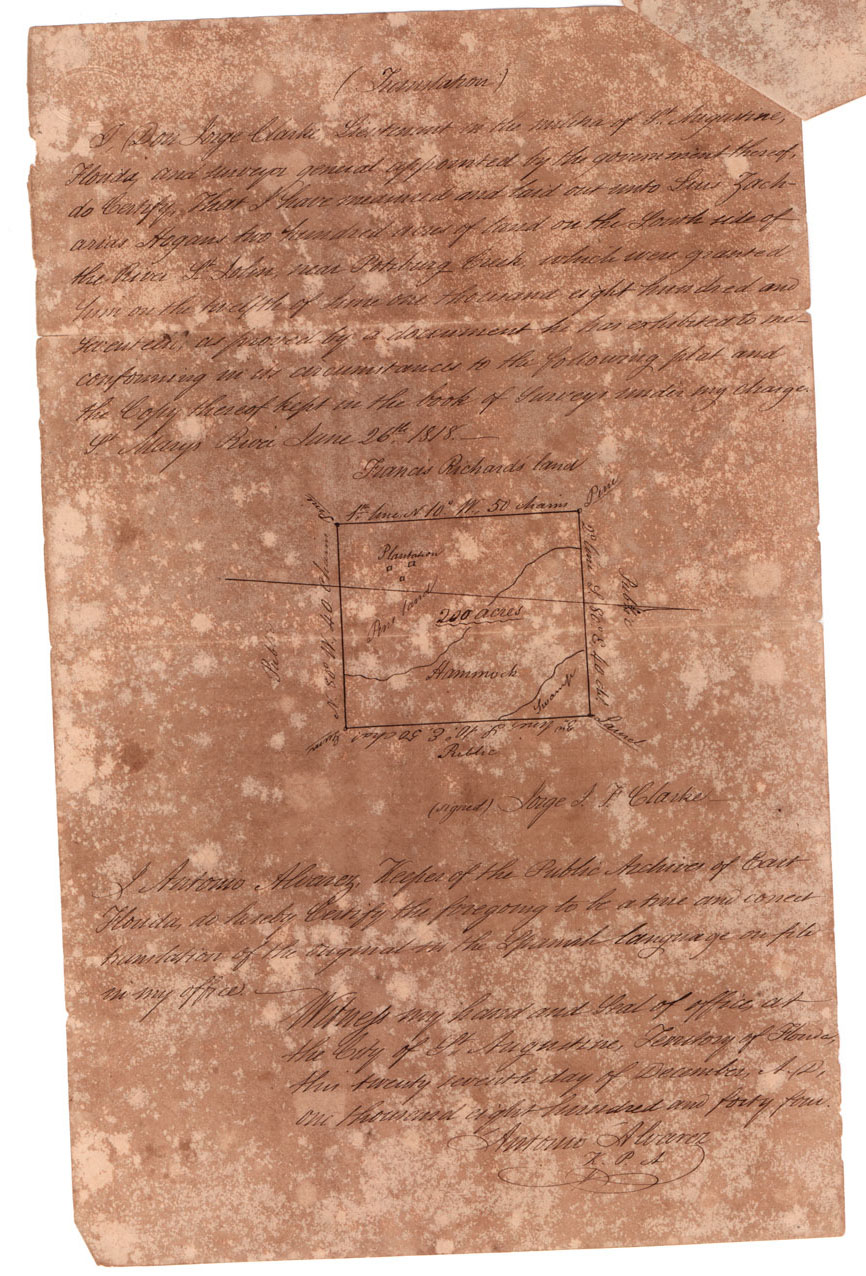 (Translation)
I Don Jorge Clarke Lieutenant in the militia of St Augustine,
Florida, and surveyor general appointed by the government thereof,
do Certify, That I have measured and laid out unto Zach-
arias two hundred acres of land on the South side of
the River St John, near Creek, which were granted
him on the twelfth of June one thousand eight hundred and
seventeen, as proved by a document he has exhibited to me
conforming in its circumstances to the following plat and
the Copy thereof kept in the book of Surveys under my charge.
St Marys River June 26th. 1818.
Francis Richards land
Pine
1st. line N 10° W. 50 chains
Pine
Plantation
Pine land
200 acres
Hammock
Swamp
2d line S. 80° E. 40 chs
Public
Laurel
3d. line S 10° E. 50 chai
Public
N 80° W. 40 Chains
Public
(signed) Jorge J. F Clarke
I Antonio Alvarez, Keeper of the Public Archives of East
Florida, do hereby Certify the foregoing to be a true and correct
translation of the original in the Spanish language on file
in my office.
Witness my hand and Seal of office, at
the City of St Augustine, Territory of Florida,
this twenty seventh day of December, A.D.
one thousand eight hundred and forty four.
Antonio Alvarez
K. P. A